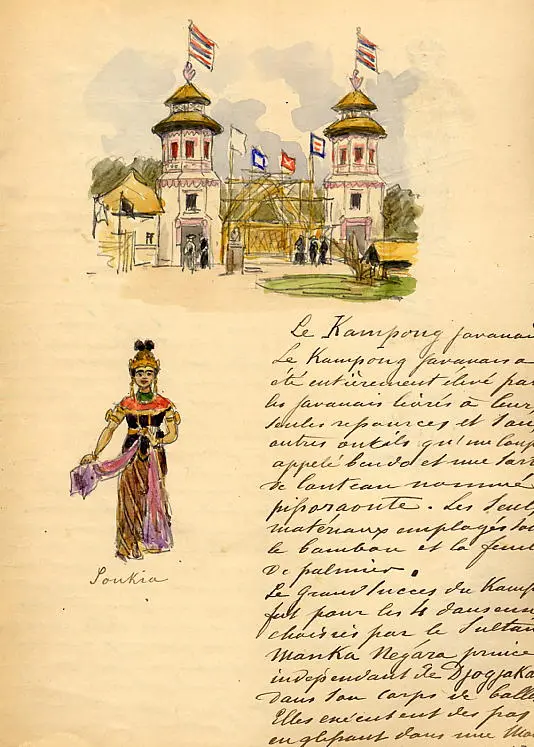 Le Kampong javanai
Le Kampong javanais a
été entièrement élevé par
les javanais livrés à leur
seules ressources et sans
autres outils qu'une coup
appelé bendo et une sort
de couteau nommé
pissoraoute. Les seul
matériaux employés so
le bambou et la feuil
de palmier.
Le grand succès du Kamp
fut pour les 4 danseus
choisies par le Sultan
Manka Negara prince
indépendant de Djogjaka
dans son corps de balle
Elles exécutent des pas
en glissant dans une
Soukia